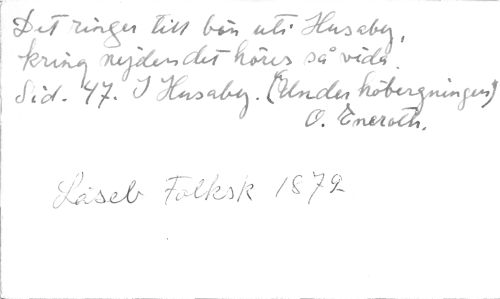 Det ringer till bön uti Husaby,
kring nejden det höres så vida.
Sid. 47. I Husaby. (Under höbergningen)
O. Eneroth.
Läseb Folksk 1872